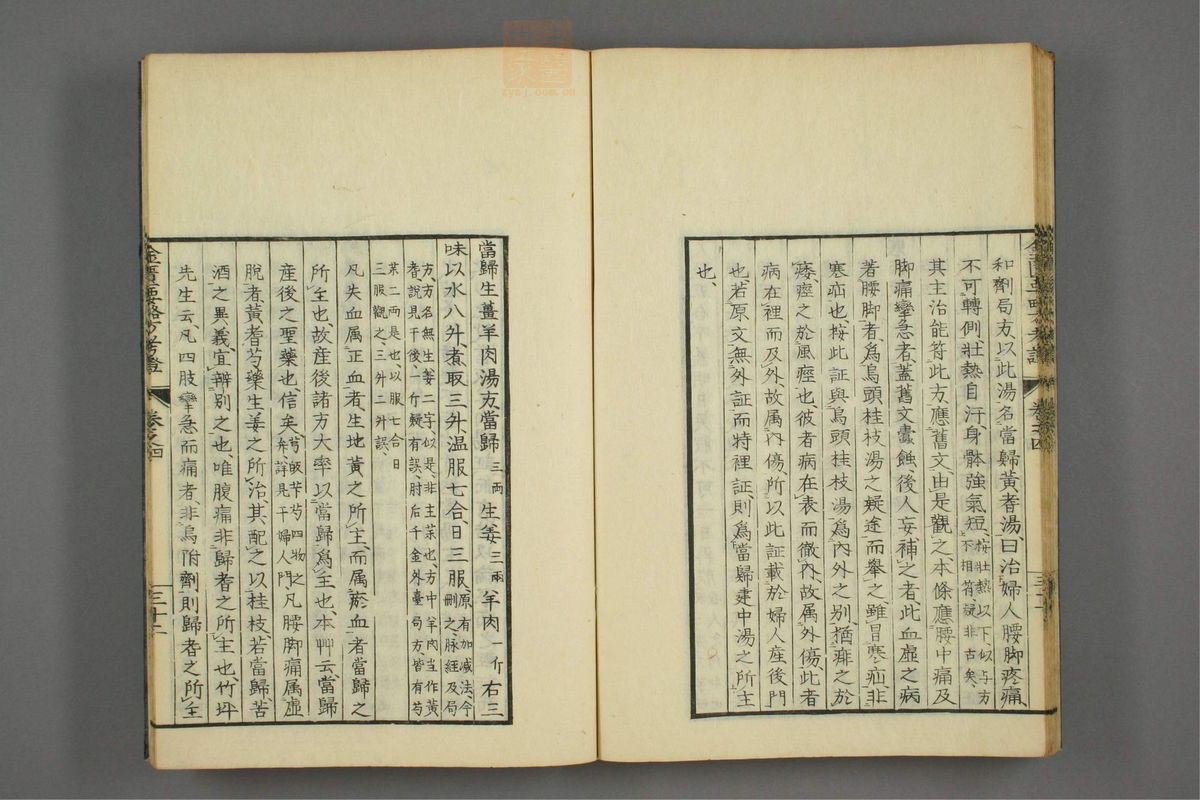 和劑局方、以此湯名當歸黃耆湯、曰治婦人腰脚疼痛
不可轉側、壯熱自汗、身骵強氣短、按壯熱以下、似与方不相符、疑非古矣、
其主治能符此方、應舊文、由是觀之、本條應腰中痛及
脚痛攣急者、蓋舊文蠹蝕、後人妄補之者、此血虛之病
若腰脚者、爲烏頭桂枝湯之疑途而舉之、雖冒寒疝非
寒疝也、按此証與烏頭桂枝湯爲內外之别、猶痱之於
痿、痙之於風痙也、彼者病在表而徹內、故属外傷、此者
病在裡而及外、故属內傷、所以此証載於婦人産後門
也、若原文無外証而特裡証、則爲當歸建中湯之所主
也、
金匱要略方考證
卷之四
當歸生薑羊肉湯方、當歸三兩、生姜三兩羊肉一斤右三
味以水八升、煮取三升、温服七合、日三服、原有加减法、今刪之、脉經及局
方、方名無生姜二字、似是、非主菜也、方中羊肉当作黃耆、說見于後、一斤疑有誤、肘后千金外臺局方、皆有芍
菜二両是也、以服七合日三服觀之、三升二升誤、
凡失血属正血者、生地黃之所主、而属瘀血者當歸之
所主也、故産後諸方大率以當歸爲主也、本艸云、當歸
産後之聖藥也、信矣、芎皈芐芍四物之弁、詳見于婦人門之凡腰脚痛属虛
脫者、黃耆芍藥生姜之所治、其配之以桂枝、若當歸、苦
酒之異義、宜辨别之也、唯腹痛非歸耆之所主也、竹坪
先生云、凡四肢攣急而痛者、非烏附劑則歸耆之所主
金匱要略方考證
卷之四
三十二